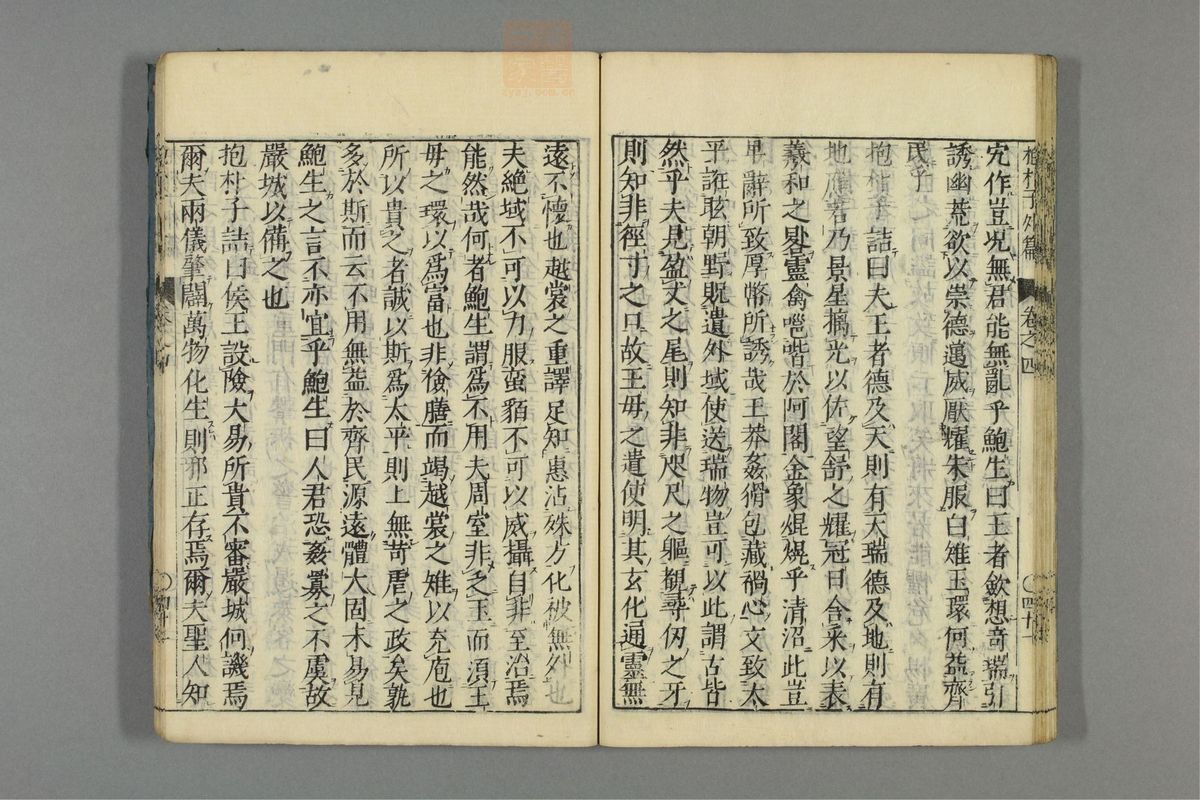 抱朴子外篇 卷之四 〇四十一
宄作豈咒無君能無亂乎鮑生曰王者欽想竒瑞引
誘幽荒欲以崇德邁威厭耀朱服白雉玉環何益齊
民乎
抱朴子詰曰夫王者德及天則有天瑞德及地則有
地應若乃景星摛光以佐望舒之耀冠日含采以表
羲和之晷靈禽嗈喈於阿閣金象焜熀乎清沼此豈
卑辭所致厚幣所誘哉王莽姦猾包藏禍心文致太
平誑眩朝野貺遺外域使送瑞物豈可以此謂古皆
然乎夫見盈丈之尾則知非咫尺之軀覩尋仞之牙
則知非徑寸之口故王母之遣使明其玄化通靈無
遠不懷也越裳之重譯足知惠沾殊方化被無外也
夫絶域不可以力服蠻貊不可以威攝自非至治焉
能然哉何者鮑生謂爲不用夫周室非乏玉而須王
母之環以爲富也非儉膳而竭越裳之雉以充庖也
所以貴之者誠以斯爲太平則上無苛虐之政矣孰
多於斯而云不用無益於齊民源遠體大固未易見
鮑生之言不亦宜乎鮑生曰人君恐姦釁之不虞故
嚴城以備之也
抱朴子詰曰侯王設險大易所貴不審嚴城何譏焉
爾夫兩儀肇闢萬物化生則邪正存焉爾夫聖人知